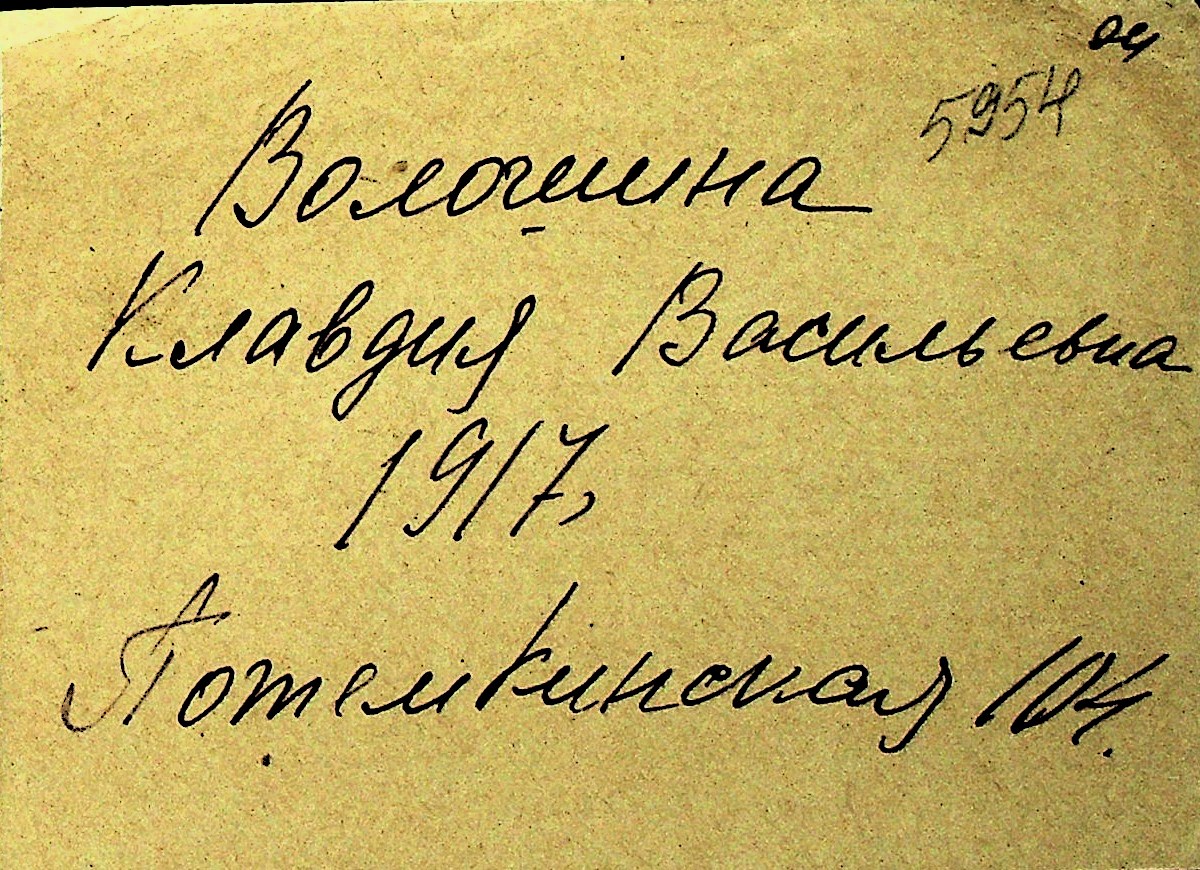 5954
Волошина
Клавдия Васильевна
1917,
Потемкинская 104.